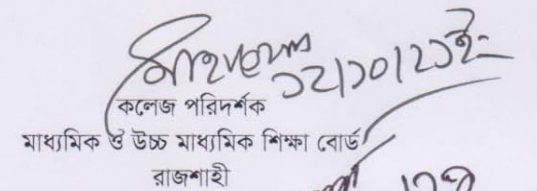 ১২/১০/২১ইং
কলেজ পরিদর্শক
মাধ্যমিক ও উচ্চ মাধ্যমিক শিক্ষা বোর্ড
রাজশাহী